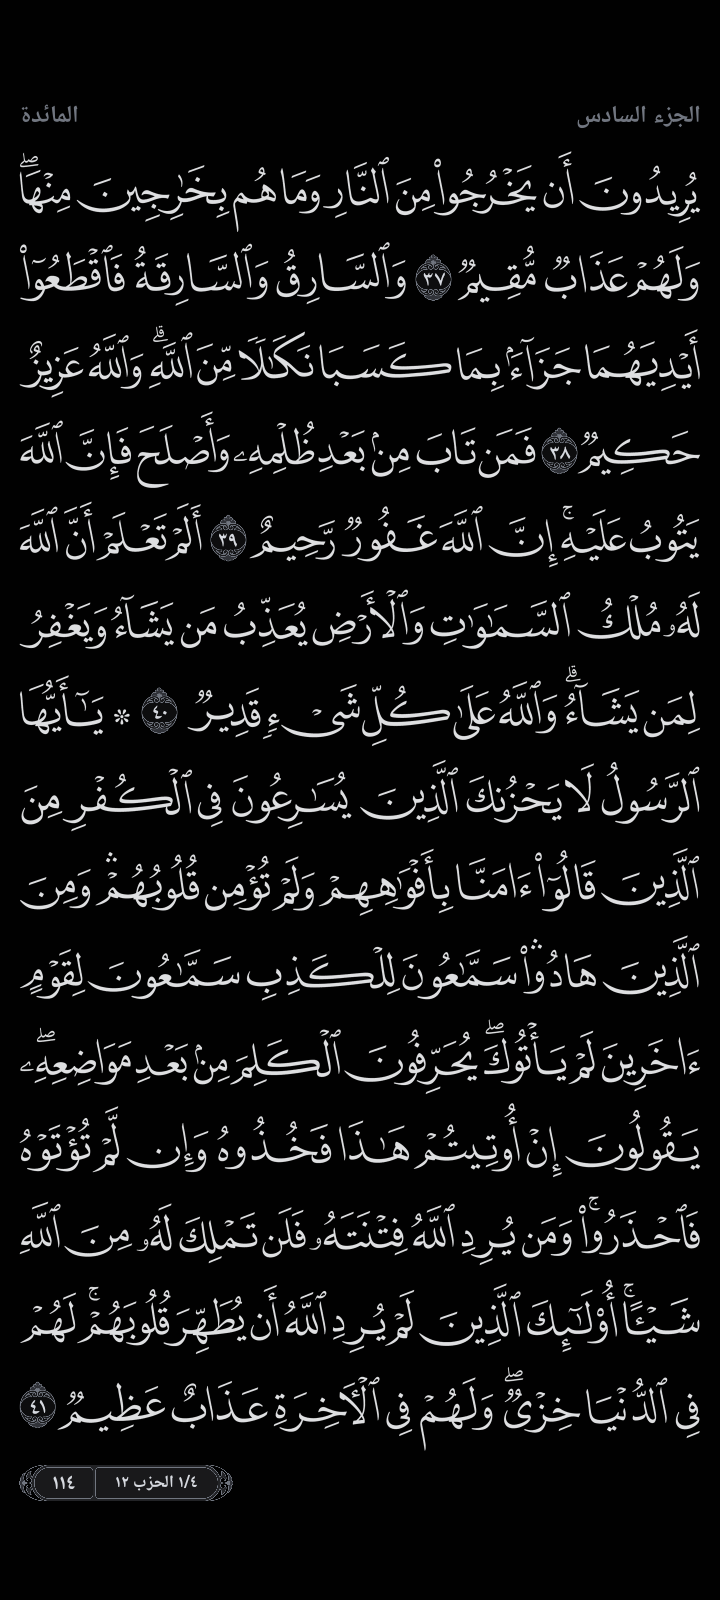 الجزء السادس
المائدة
يُرِيدُونَ أَن يَخْرُجُوا۟ مِنَ ٱلنَّارِ وَمَا هُم بِخَـٰرِجِينَ مِنْهَا ۖ
وَلَهُمْ عَذَابٌ مُّقِيمٌ ٣٧ وَٱلسَّارِقُ وَٱلسَّارِقَةُ فَٱقْطَعُوٓا۟
أَيْدِيَهُمَا جَزَآءًۢ بِمَا كَسَبَا نَكَـٰلًا مِّنَ ٱللَّهِ ۗ وَٱللَّهُ عَزِيزٌ
حَكِيمٌ ٣٨ فَمَن تَابَ مِنۢ بَعْدِ ظُلْمِهِۦ وَأَصْلَحَ فَإِنَّ ٱللَّهَ
يَتُوبُ عَلَيْهِ ۚ إِنَّ ٱللَّهَ غَفُورٌ رَّحِيمٌ ٣٩ أَلَمْ تَعْلَمْ أَنَّ ٱللَّهَ
لَهُۥ مُلْكُ ٱلسَّمَـٰوَٰتِ وَٱلْأَرْضِ يُعَذِّبُ مَن يَشَآءُ وَيَغْفِرُ
لِمَن يَشَآءُ ۗ وَٱللَّهُ عَلَىٰ كُلِّ شَىْءٍ قَدِيرٌ ٤٠ * يَـٰٓأَيُّهَا
ٱلرَّسُولُ لَا يَحْزُنكَ ٱلَّذِينَ يُسَـٰرِعُونَ فِى ٱلْكُفْرِ مِنَ
ٱلَّذِينَ قَالُوٓا۟ ءَامَنَّا بِأَفْوَٰهِهِمْ وَلَمْ تُؤْمِن قُلُوبُهُمْ ۛ وَمِنَ
ٱلَّذِينَ هَادُوا۟ ۛ سَمَّـٰعُونَ لِلْكَذِبِ سَمَّـٰعُونَ لِقَوْمٍ
ءَاخَرِينَ لَمْ يَأْتُوكَ ۖ يُحَرِّفُونَ ٱلْكَلِمَ مِنۢ بَعْدِ مَوَاضِعِهِۦ ۖ
يَقُولُونَ إِنْ أُوتِيتُمْ هَـٰذَا فَخُذُوهُ وَإِن لَّمْ تُؤْتَوْهُ
فَٱحْذَرُوا۟ ۚ وَمَن يُرِدِ ٱللَّهُ فِتْنَتَهُۥ فَلَن تَمْلِكَ لَهُۥ مِنَ ٱللَّهِ
شَيْـًٔا ۚ أُو۟لَـٰٓئِكَ ٱلَّذِينَ لَمْ يُرِدِ ٱللَّهُ أَن يُطَهِّرَ قُلُوبَهُمْ ۚ لَهُمْ
فِى ٱلدُّنْيَا خِزْىٌ ۖ وَلَهُمْ فِى ٱلْـَٔاخِرَةِ عَذَابٌ عَظِيمٌ ٤١
١/٤ الحزب ١٢
١١٤